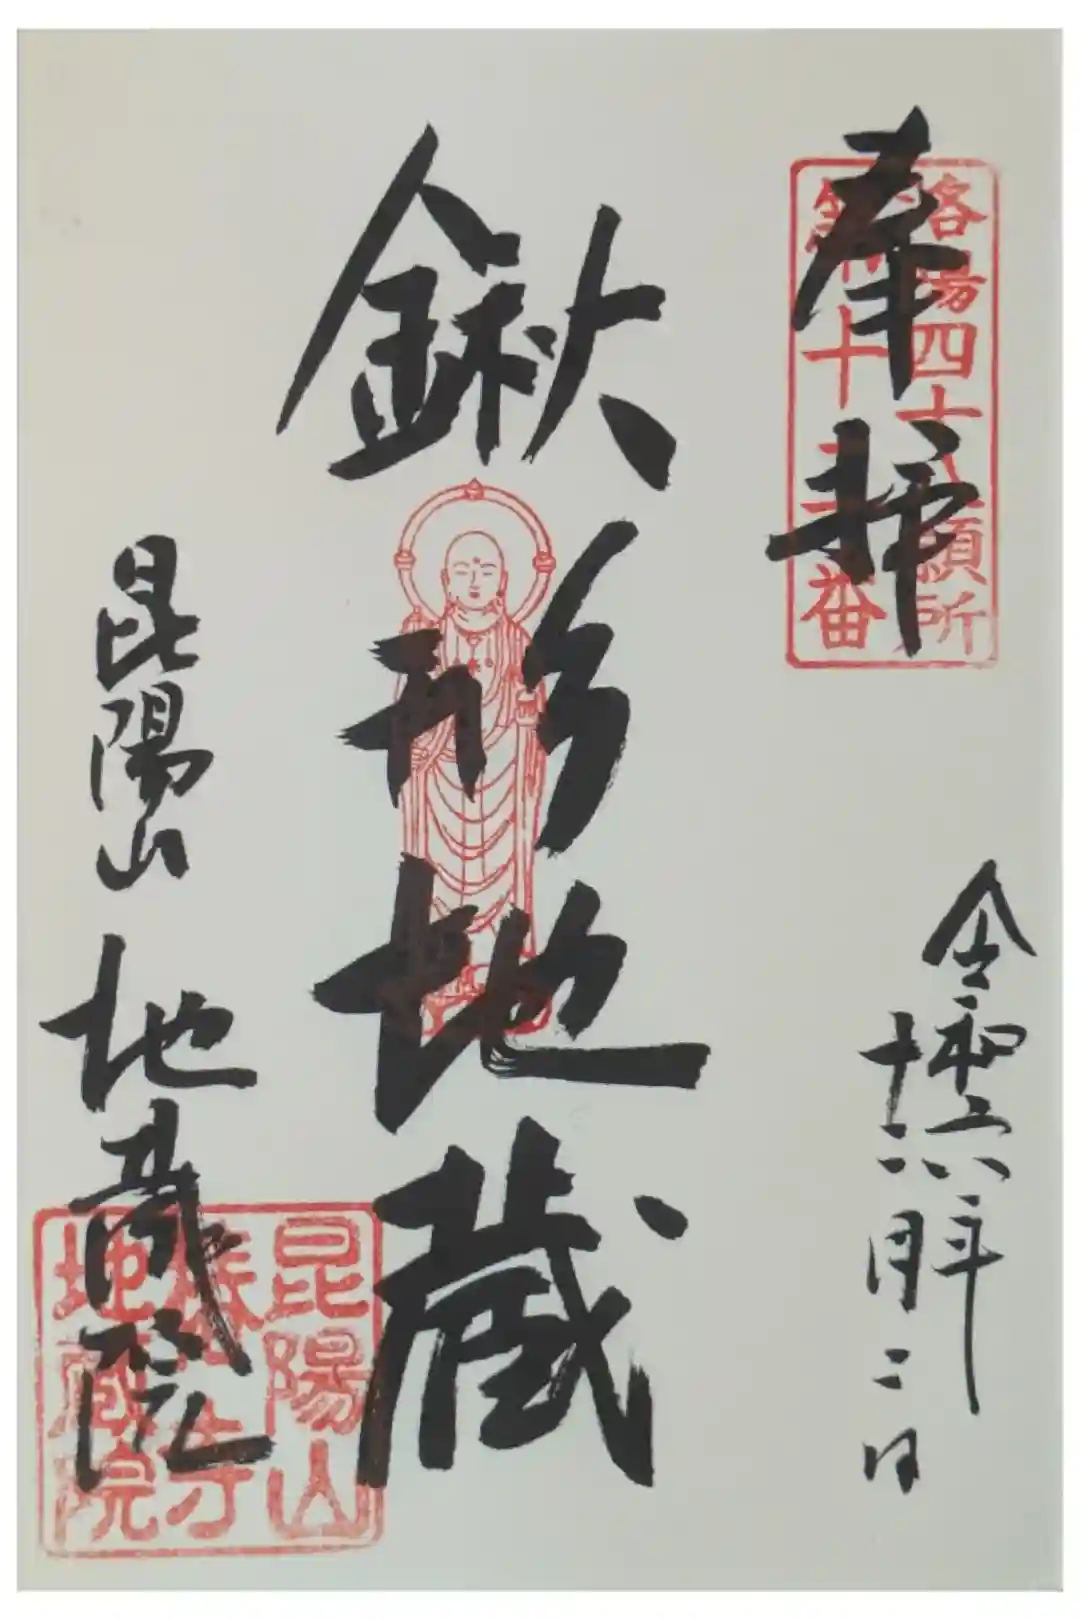 奉拝
洛陽四十八願所
第十番
令和六年
十二月二日
鍬形地蔵
昆陽山 地蔵院
昆陽山
椿寺
地蔵院